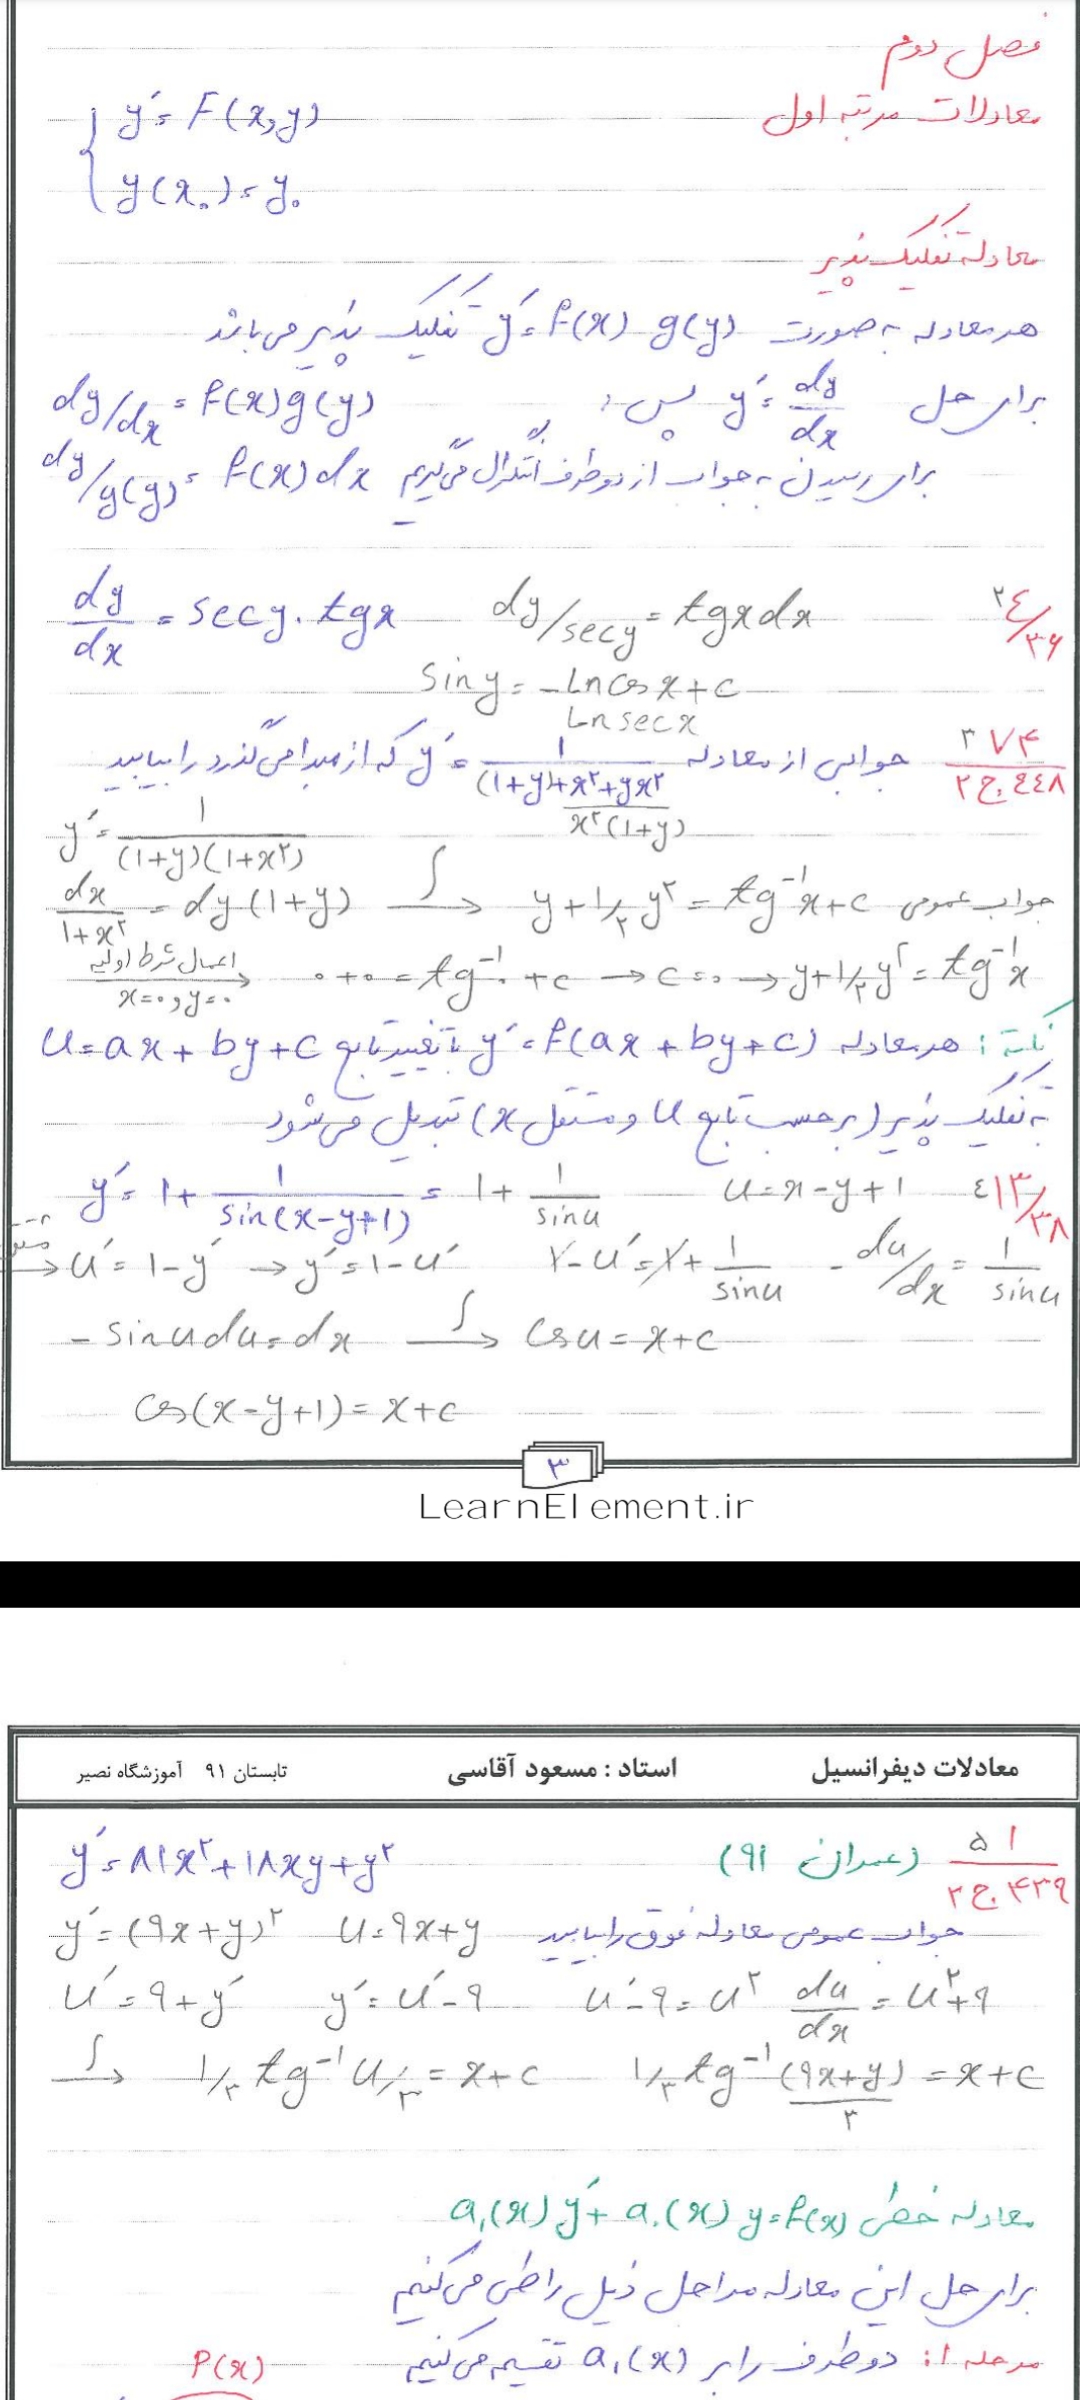 فصل دوم
معادلات مرتبه اول
y′ = F(x,y)
y(x۰) = y۰
معادله تفکیک پذیر
هر معادله به صورت y′ = f(x) g(y) تفکیک پذیر می باشد
برای حل y′ = dy/dx پس : dy/dx = f(x)g(y)
برای رسیدن به جواب از دو طرف انتگرال می گیریم dy/g(y) = f(x)dx
۲ ٤/۳۶ dy/dx = secy . tgx dy/secy = tgxdx
siny = -Ln cosx + c
Ln secx
۳ ۷۴/۴۴۸ ج ۲ جوابی از معادله y′ = 1/((1+y)+x۲+yx۲) که از مبدا می گذرد را بیابید
x۲(1+y)
y′ = 1/((1+y)(1+x۲))
dx/(1+x۲) = dy(1+y) ∫→ y+1/۲ y۲ = tg⁻¹x+c جواب عمومی
اعمال شرط اولیه x=۰ و y=۰ → ۰+۰ = tg⁻¹۰ + c → c=۰ → y+1/۲ y۲ = tg⁻¹x
نکته : هر معادله y′ = f(ax+by+c) با تغییر تابع u = ax+by+c
به تفکیک پذیر (بر حسب تابع u و مستقل x) تبدیل می شود
٤ ۱۳/۳۸ y′ = 1+ 1/sin(x-y+1) = 1+ 1/sinu u = x-y+1
→ u′ = 1-y′ → y′ = 1-u′ 1-u′ = 1+ 1/sinu -du/dx = 1/sinu
-sinudu = dx ∫→ cosu = x+c
cos(x-y+1) = x+c
۳
LearnElement.ir
معادلات دیفرانسیل استاد : مسعود آقاسی تابستان ۹۱ آموزشگاه نصیر
۵ ۱/۴۳۹ ج ۲ (عمران ۹۱) y′ = ۸۱x۲+۱۸xy+y۲
جواب عمومی معادله فوق را بیابید y′ = (۹x+y)۲ u = ۹x+y
u′ = ۹+y′ y′ = u′-۹ u′-۹ = u۲ du/dx = u۲+۹
∫→ 1/۳ tg⁻¹ u/۳ = x+c 1/۳ tg⁻¹ (۹x+y)/۳ = x+c
معادله خطی a₁(x)y′ + a۰(x)y = f(x)
برای حل این معادله مراحل ذیل را طی می کنیم
مرحله ۱: دو طرف را بر a₁(x) تقسیم می کنیم
P(x)